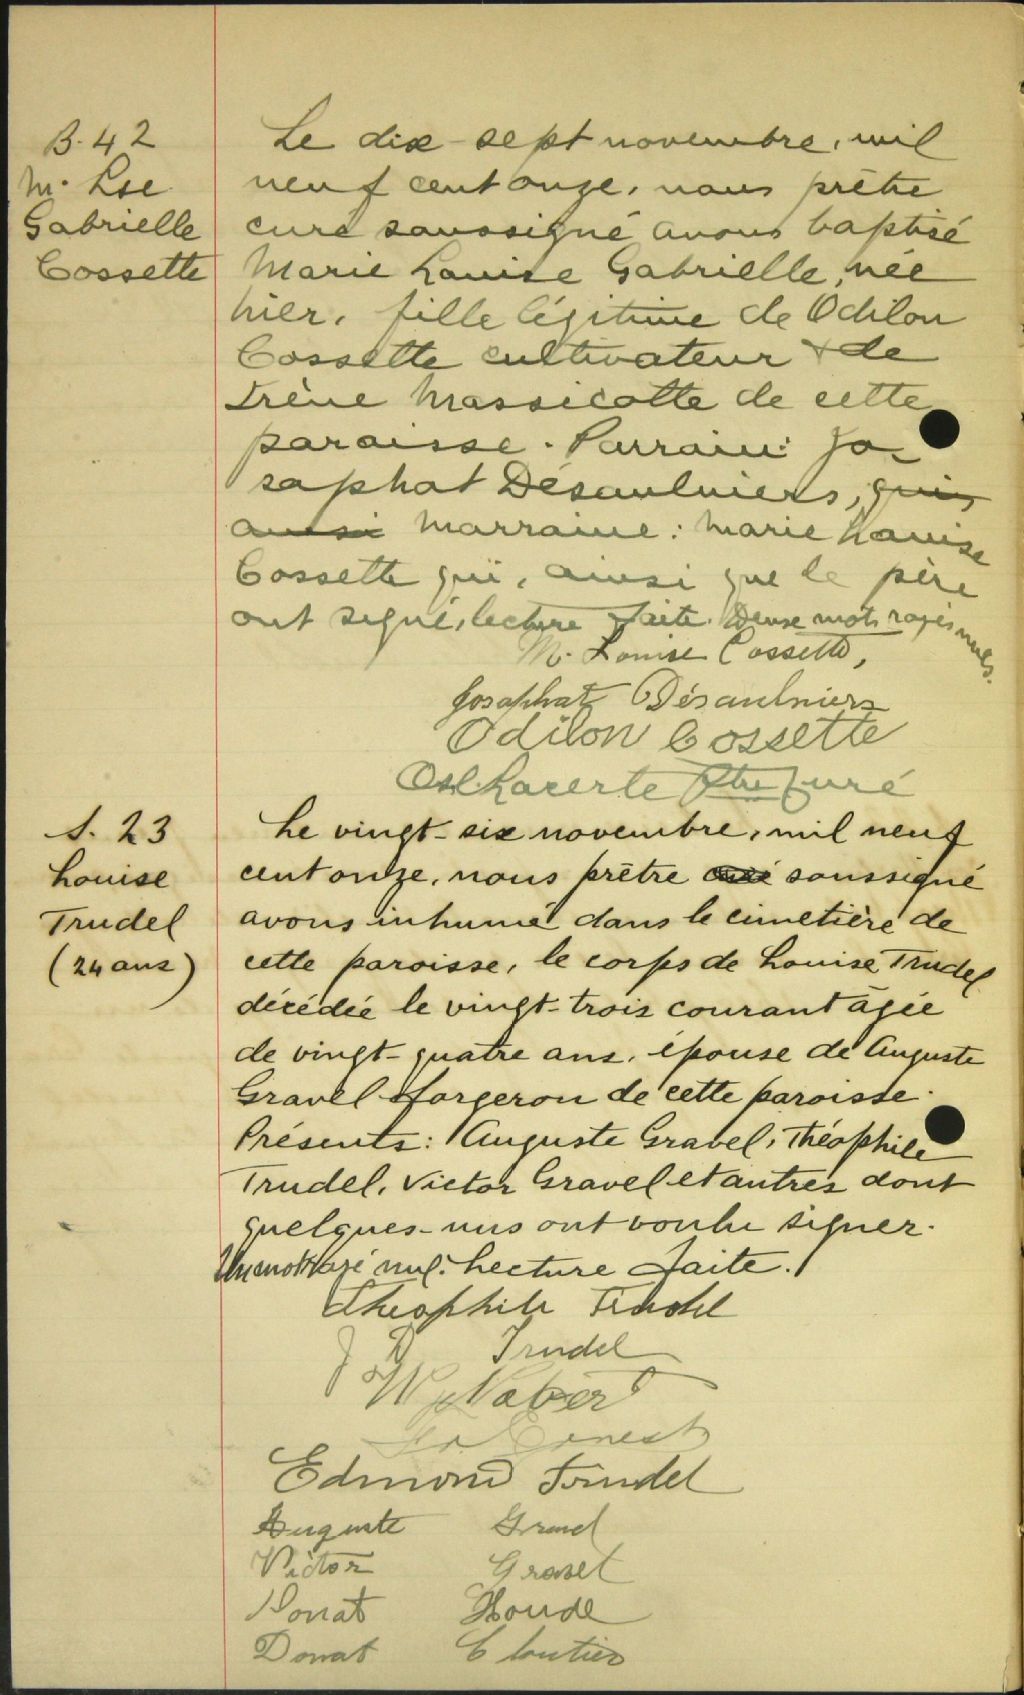 B. 42
M. Lse
Gabrielle
Cossette
Le dix-sept novembre, mil
neuf cent onze, nous prêtre
curé soussigné avons baptisé
Marie Louise Gabrielle, née
hier, fille légitime de Odilon
Cossette cultivateur & de
Irène Massicotte de cette
paroisse. Parrain: Jo-
saphat Désaulniers, qui,
ainsi Marraine: Marie Louise
Cossette qui, ainsi que le père
ont signé, lecture faite. Deux mots rayés nuls.
M. Louise Cossette,
Josaphat Désaulniers
Odilon Cossette
Lacerte Ptre Curé
S. 23
Louise
Trudel
(24 ans)
Le vingt-six novembre, mil neuf
cent onze, nous prêtre curé soussigné
avons inhumé dans le cimetière de
cette paroisse, le corps de Louise Trudel
décédée le vingt-trois courant âgée
de vingt-quatre ans, épouse de Auguste
Gravel forgeron de cette paroisse.
Présents: Auguste Gravel, Théophile
Trudel, Victor Gravel et autres dont
quelques-uns ont voulu signer.
Un mot rayé nul. Lecture faite.
Théophile Trudel
J D Trudel
W Naber
Ernest
Edmond Trudel
Auguste Gravel
Victor Gravel
Donat Houde
Donat Cloutier